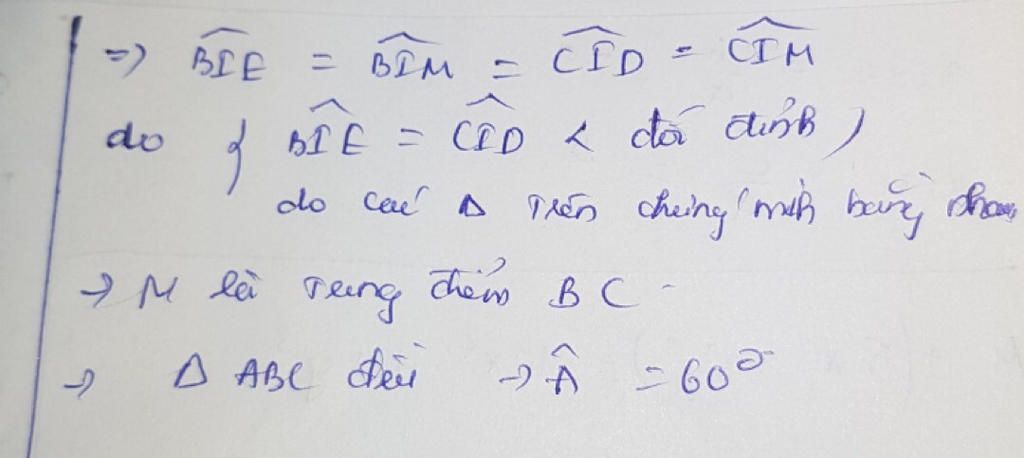 => BIE = BIM = CID = CIM
do { BIE = CID < đối đỉnh )
do các Δ trên chứng minh bằng nhau
→ M là trung điểm BC
→ Δ ABC đều → Â = 60°